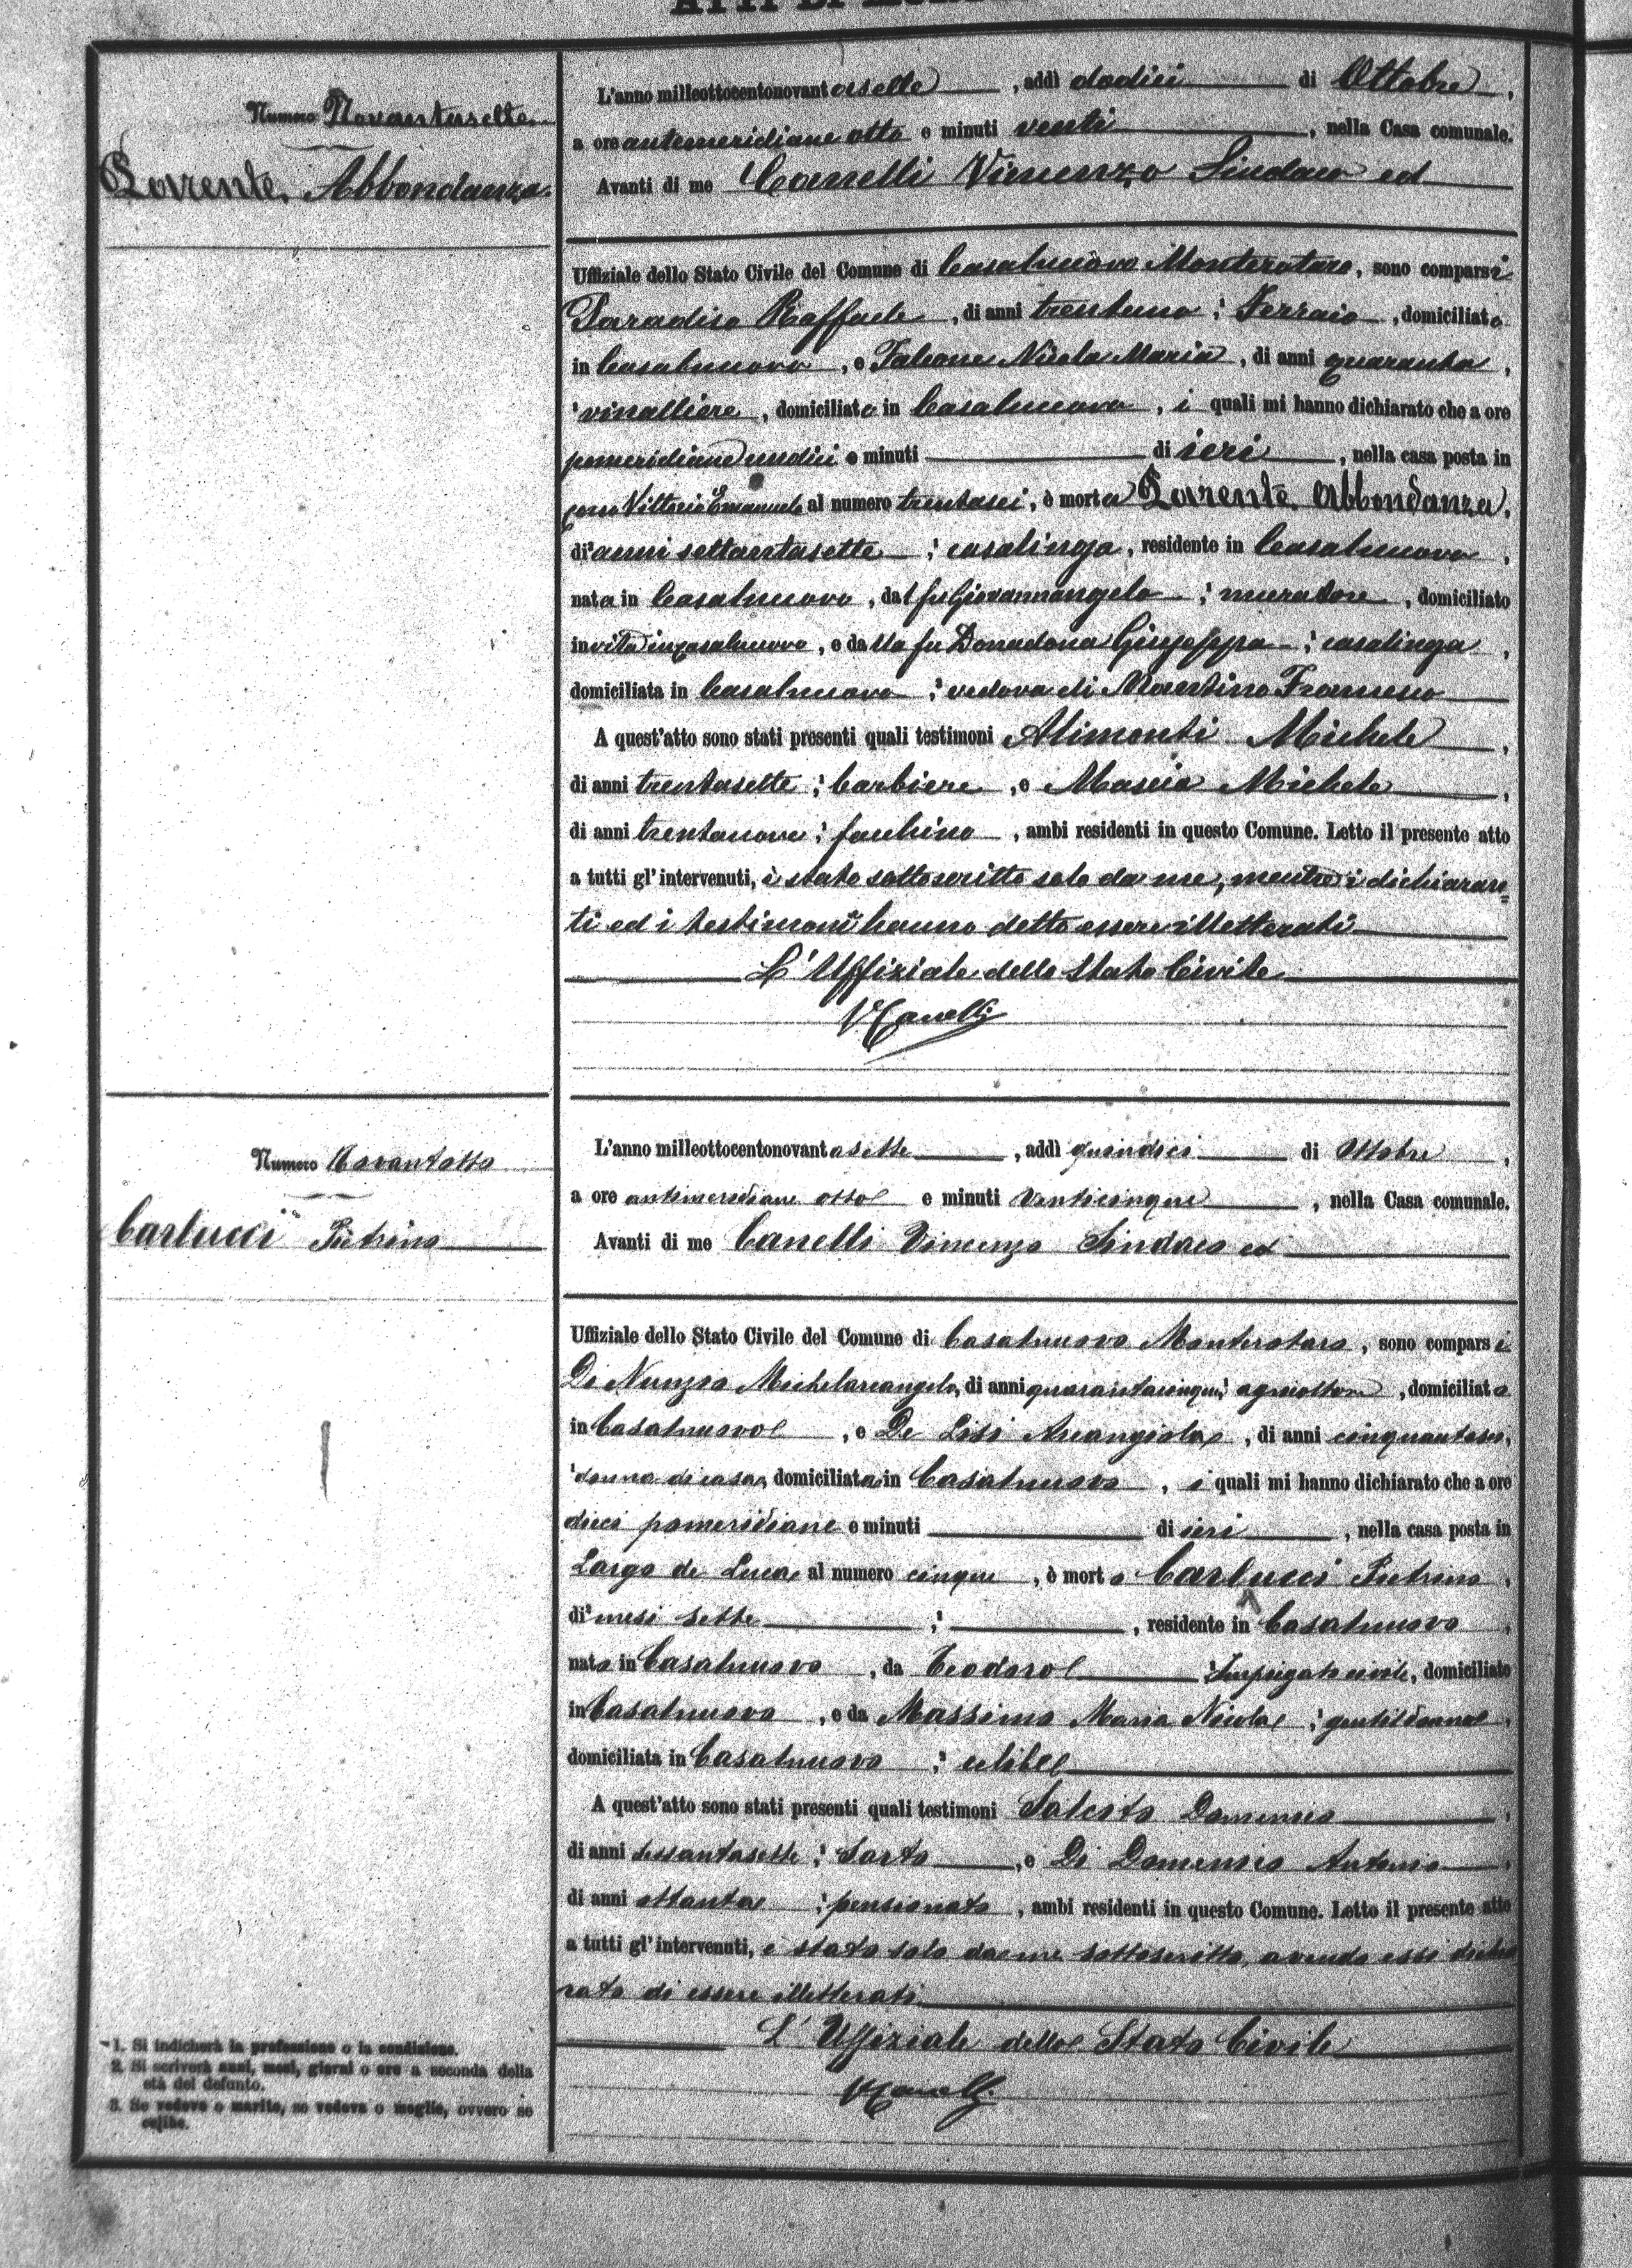 Numero Novantasette
Lorente Abbondanza
L'anno milleottocentonovantasette, addì dodici di Ottobre,
a ore antemeridiane otto e minuti venti, nella Casa comunale.
Avanti di me Canelli Vincenzo Sindaco ed
Uffiziale dello Stato Civile del Comune di Casalnuovo Monterotaro, sono comparsi
Paradiso Raffaele, di anni trentuno; Ferraio, domiciliato
in Casalnuovo, e Falcone Nicola Maria, di anni quaranta,
vinalliere, domiciliato in Casalnuovo, i quali mi hanno dichiarato che a ore
pomeridiane undici e minuti di ieri, nella casa posta in
corso Vittorio Emanuele al numero trentasei, è morta Lorente Abbondanza,
di anni settantasette; casalinga, residente in Casalnuovo,
nata in Casalnuovo, dal fu Giovannangelo; muratore, domiciliato
in vita in Casalnuovo, e dalla fu Donadona Giuseppa; casalinga,
domiciliata in Casalnuovo; vedova di Martino Francesco
A quest'atto sono stati presenti quali testimoni Alimonti Michele,
di anni trentasette; barbiere, e Mascia Michele,
di anni trentanove; facchino, ambi residenti in questo Comune. Letto il presente atto
a tutti gl'intervenuti, è stato sottoscritto solo da me, mentre i dichiaran=
ti ed i testimoni hanno detto essere illetterati
L'Uffiziale dello Stato Civile
V Canelli
Numero Novantotto
Carlucci Pietrino
L'anno milleottocentonovantasette, addì quindici di Ottobre,
a ore antimeridiane otto e minuti venticinque, nella Casa comunale.
Avanti di me Canelli Vincenzo Sindaco ed
Uffiziale dello Stato Civile del Comune di Casalnuovo Monterotaro, sono comparsi
Di Nunzio Michelarcangelo, di anni quarantacinque; agricoltore, domiciliato
in Casalnuovo, e De Lisi Arcangiola, di anni cinquantasei,
donna di casa, domiciliata in Casalnuovo, i quali mi hanno dichiarato che a ore
dieci pomeridiane e minuti di ieri, nella casa posta in
Largo de Luca al numero cinque, è morto Carlucci Pietrino,
di mesi sette; , residente in Casalnuovo,
nato in Casalnuovo, da Teodoro; Impiegato civile, domiciliato
in Casalnuovo, e da Massimo Maria Nicola; gentildonna,
domiciliata in Casalnuovo; celibe
A quest'atto sono stati presenti quali testimoni Salcito Domenico,
di anni sessantasette; Sarto, e Di Domenico Antonio,
di anni ottanta; pensionato, ambi residenti in questo Comune. Letto il presente atto
a tutti gl'intervenuti, è stato solo da me sottoscritto, avendo essi dichia
rato di essere illetterati
L'Uffiziale dello Stato Civile
V Canelli
1. Si indicherà la professione o la condizione.
2. Si scriverà anni, mesi, giorni o ore a seconda della
età del defunto.
3. Se vedovo o marito, se vedova o moglie, ovvero se
celibe.